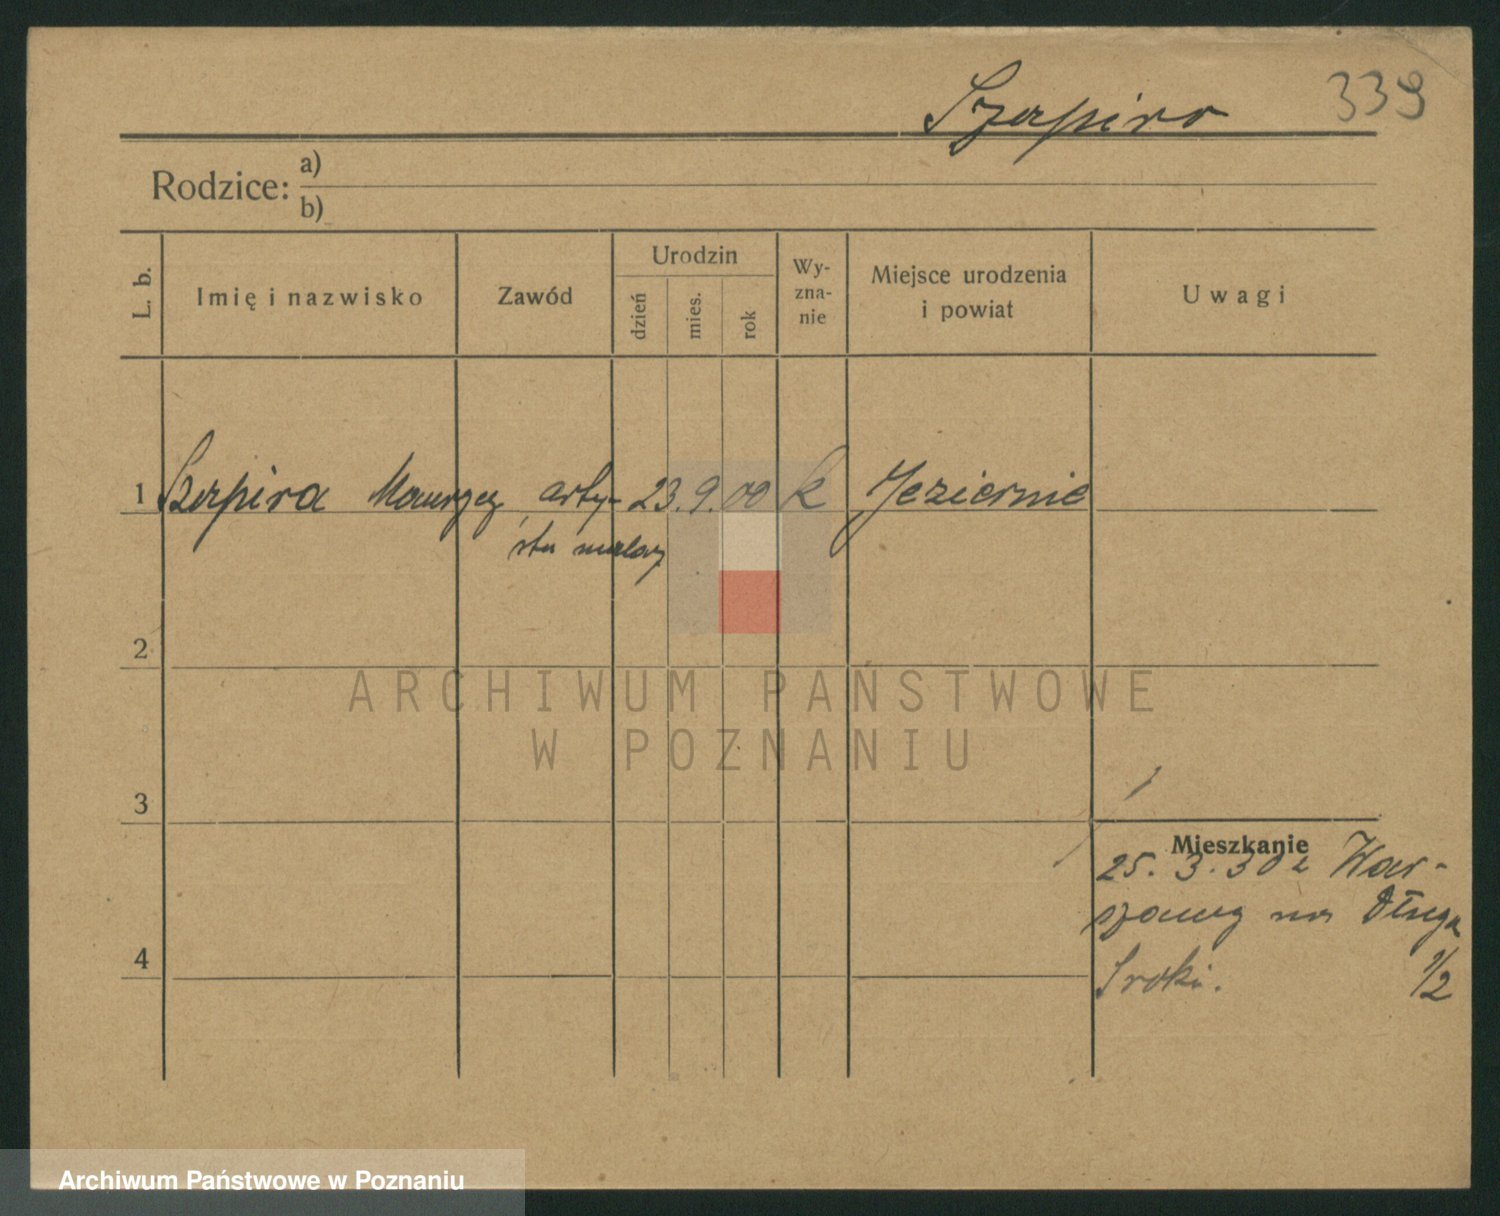 Szapiro 339
Rodzice: a)
b)
L. b.
Imię i nazwisko
Zawód
Urodzin
dzień
mies.
rok
Wy-
zna-
nie
Miejsce urodzenia
i powiat
Uwagi
1 Szapiro Maurycy arty- 23. 9. 00 k Jeziernie
sta malarz
2
ARCHIWUM PAŃSTWOWE
W POZNANIU
3
Mieszkanie
25. 3. 30 z War-
szawy na Długa
1/2
4
Archiwum Państwowe w Poznaniu